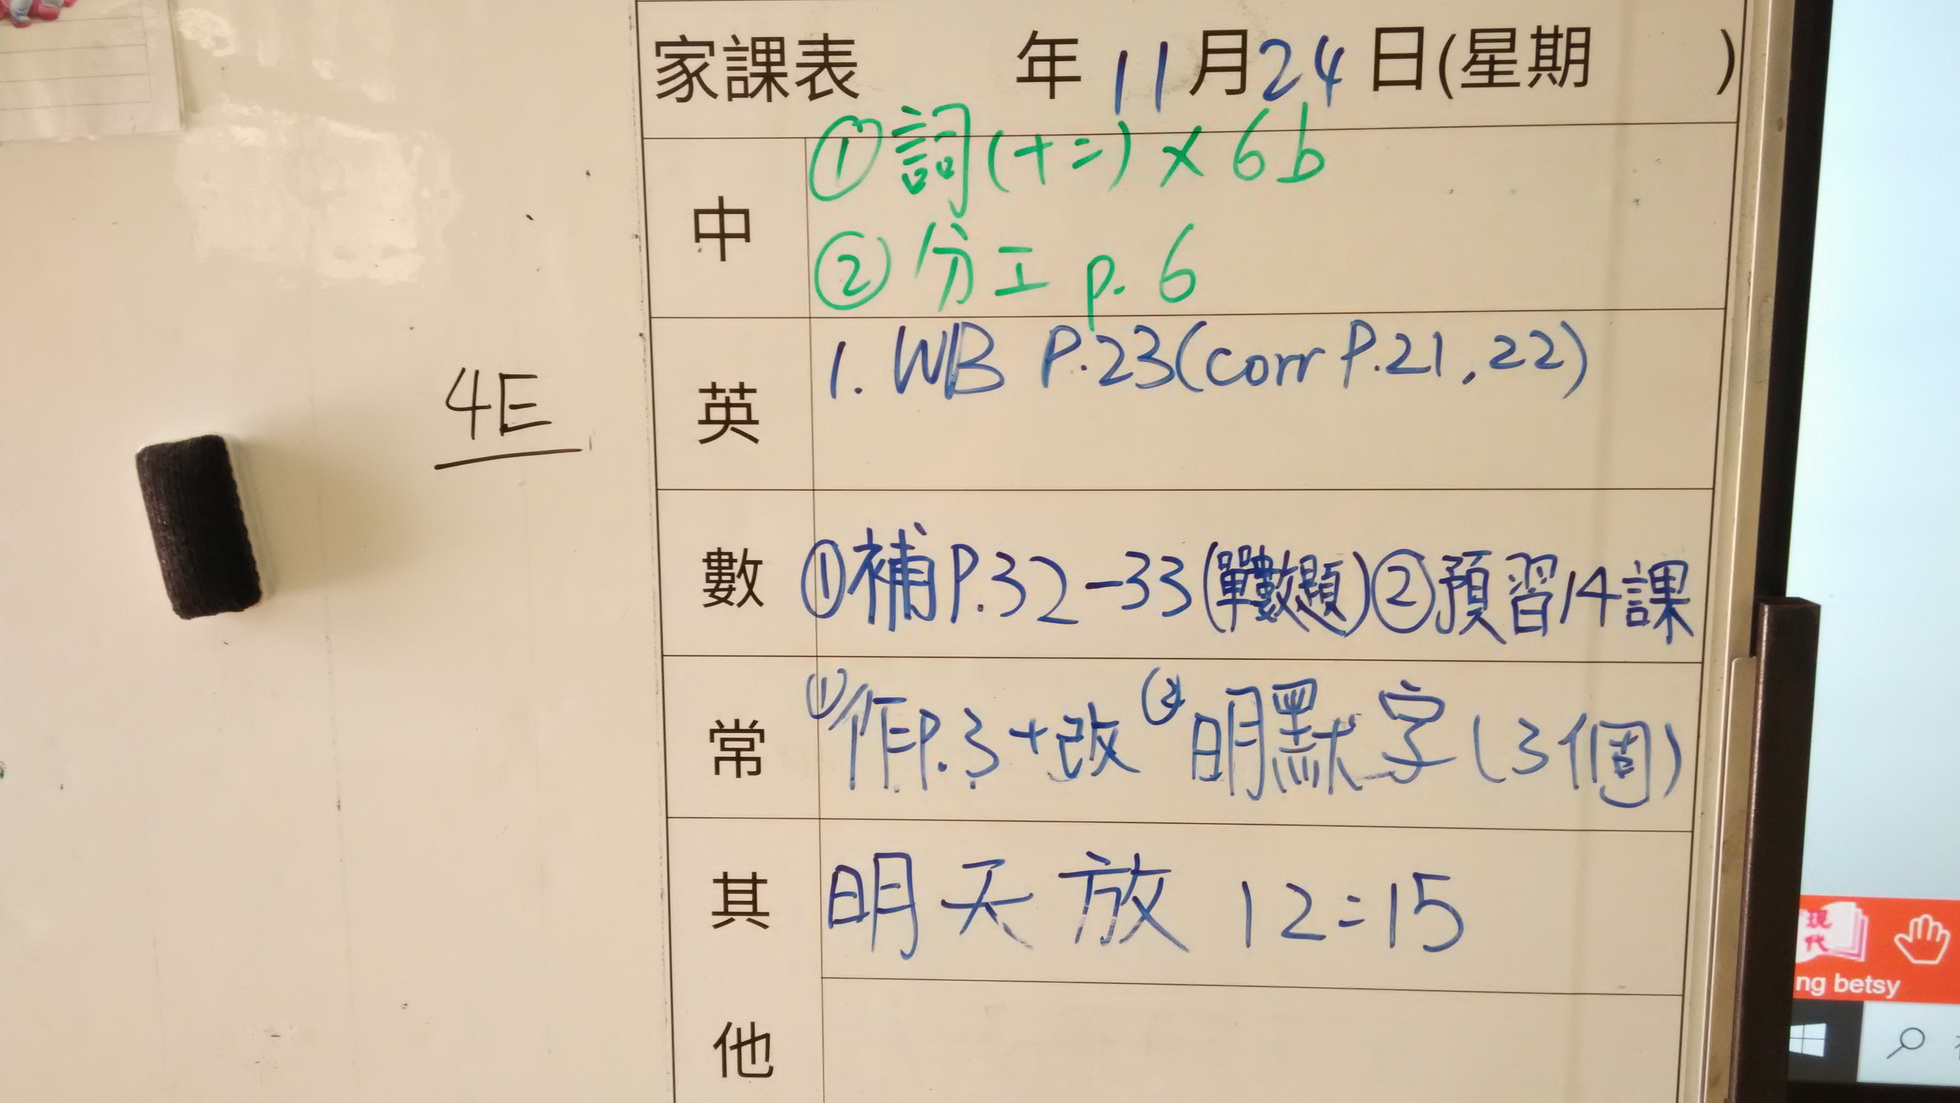 家課表 年 11 月 24 日(星期 )
中
① 詞(十二) × 6b
② 分工 p. 6
英
1. WB P.23(corr P.21, 22)
4E
數
①補P.32-33(單數題)②預習14課
常
①作P.3+改 ②明默字(3個)
其他
明天放 12:15
現代
ng betsy